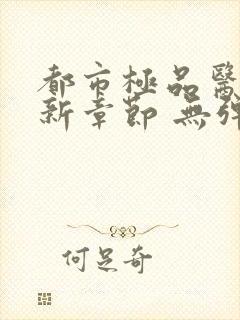 都市極品醫
新章節 無彈
何足奇